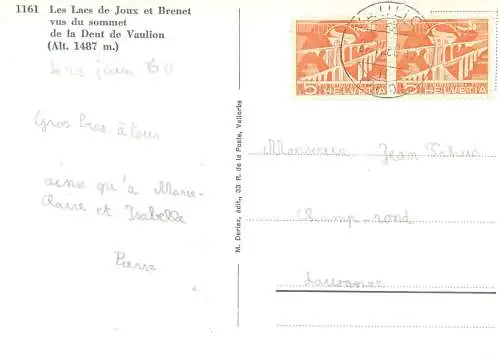 1161 Les Lacs de Joux et Brenet
vus du sommet
de la Dent de Vaulion
(Alt. 1487 m.)
juin 60
Gros bros à tous
ainsi qu'à Marie-
Claire et Isabelle
Pierre
M. Deriaz, édit., 33 R. de la Poste, Vallorbe
5 HELVETIA 5 HELVETIA
Monsieur Jean
Champ-rond
Lausanne